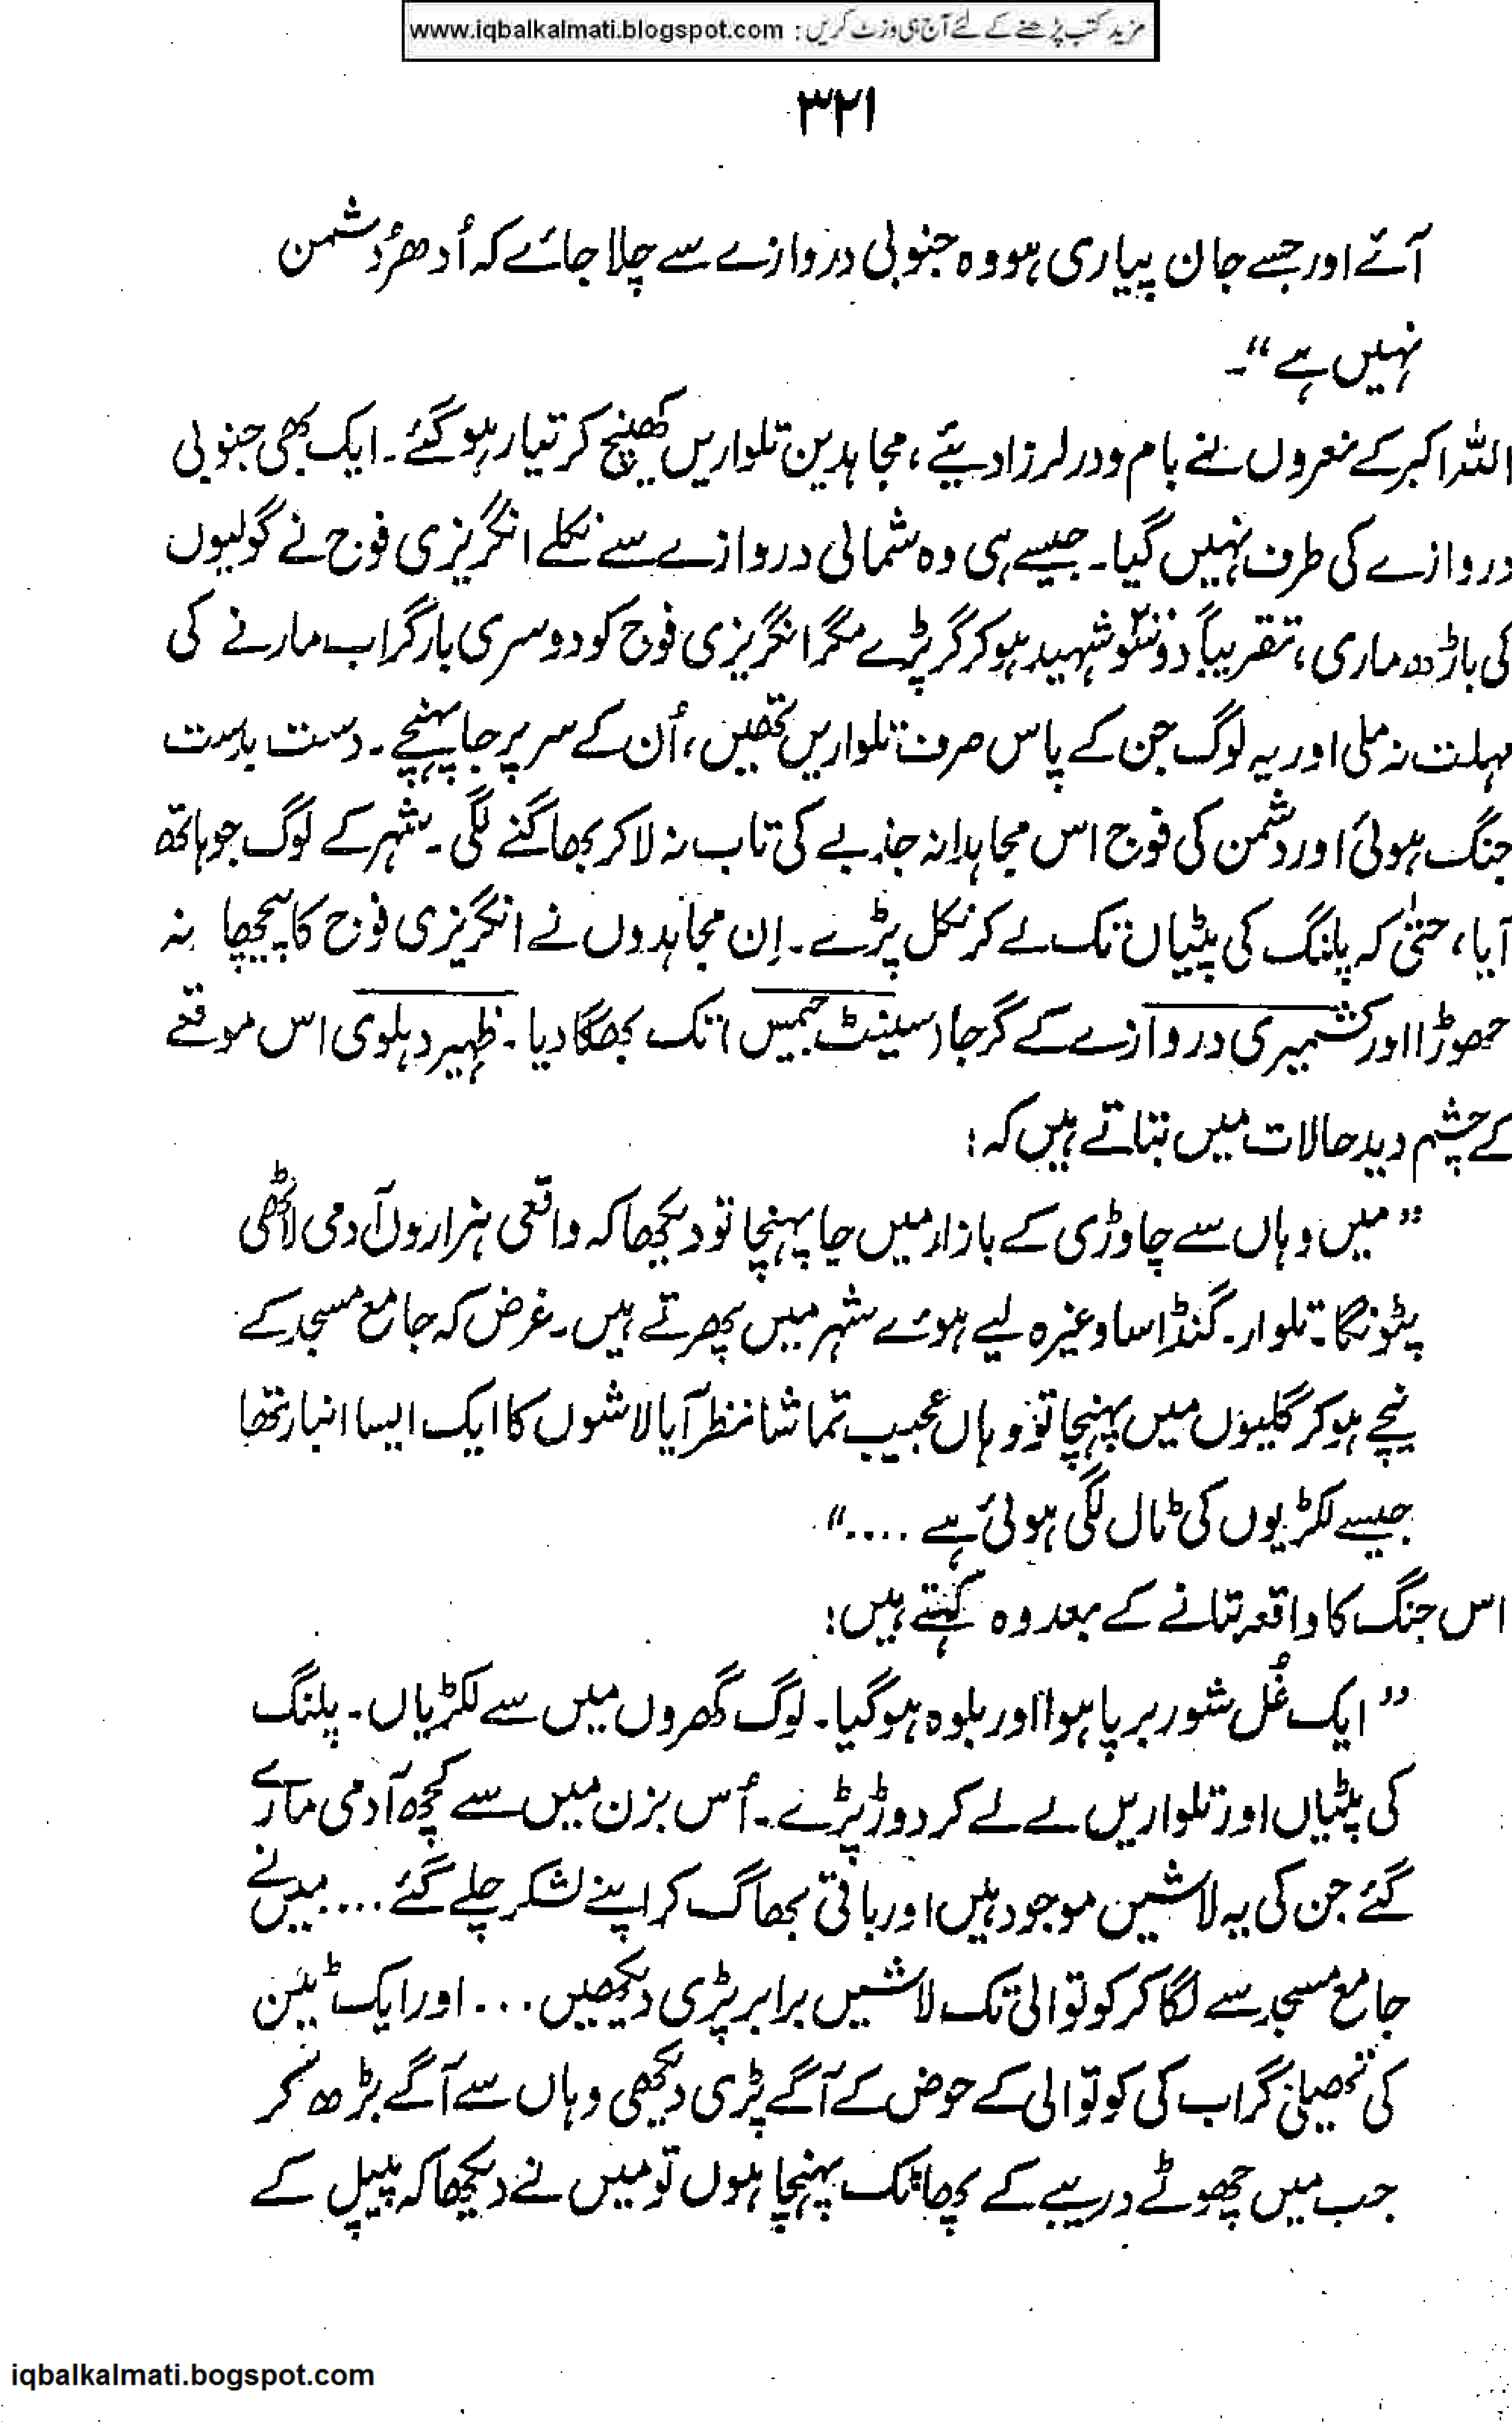 مزید کتب پڑھنے کے لئے آج ہی وزٹ کریں : www.iqbalkalmati.blogspot.com
۳۲۱
آئے اور جسے جان پیاری ہو وہ جنوبی دروازے سے چلا جائے کہ اُدھر دُشمن
نہیں ہے“۔
اللہ اکبر کے نعروں نے بام و در لرزا دیئے، مجاہدین تلواریں کھینچ کر تیار ہو گئے۔ ایک بھی جنوبی
دروازے کی طرف نہیں گیا۔ جیسے ہی وہ شمالی دروازے سے نکلے انگریزی فوج نے گولیوں
کی باڑھ ماری، تقریباً دو سَو شہید ہو کر گر پڑے مگر انگریزی فوج کو دوسری بار گراب مارنے کی
مہلت نہ ملی اور یہ لوگ جن کے پاس صرف تلواریں تھیں، اُن کے سر پر جا پہنچے۔ دست بدست
جنگ ہوئی اور دشمن کی فوج اس مجاہدانہ جذبے کی تاب نہ لا کر بھاگنے لگی۔ شہر کے لوگ جو ہاتھ
آیا، حتیٰ کہ پلنگ کی پٹیاں تک لے کر نکل پڑے۔ اِن مجاہدوں نے انگریزی فوج کا پیچھا نہ
چھوڑا اور کشمیری دروازے کے گرجا (سینٹ جیمس) تک بھگا دیا۔ ظہیر دہلوی اس موقعے
کے چشم دید حالات میں بتاتے ہیں کہ:
”میں وہاں سے چاوڑی کے بازار میں جا پہنچا تو دیکھا کہ واقعی ہزاروں آدمی لاٹھی
پٹونگا۔ تلوار۔ گنڈاسا وغیرہ لیے ہوئے شہر میں پھرتے ہیں۔ غرض کہ جامع مسجد کے
نیچے ہو کر گلیوں میں پہنچا تو وہاں عجیب تماشا نظر آیا لاشوں کا ایک ایسا انبار تھا
جیسے لکڑیوں کی ٹال لگی ہوئی ہے ....“
اس جنگ کا واقعہ بتانے کے بعد وہ کہتے ہیں:
”ایک غُل شور برپا ہوا اور بلوہ ہو گیا۔ لوگ گھروں میں سے لکڑیاں۔ پلنگ
کی پٹیاں اور تلواریں لے لے کر دوڑ پڑے۔ اُس بزن میں سے کچھ آدمی مارے
گئے جن کی یہ لاشیں موجود ہیں اور باقی بھاگ کر اپنے لشکر چلے گئے .... میں نے
جامع مسجد سے لگا کر کوتوالی تک لاشیں برابر پڑی دیکھیں ... اور ایک ٹین
کی تھیلی گراب کی کوتوالی کے حوض کے آگے پڑی دیکھی وہاں سے آگے بڑھ کر
جب میں چھوٹے دریبے کے پھاٹک پہنچا ہوں تو میں نے دیکھا کہ پیپل کے
iqbalkalmati.bogspot.com